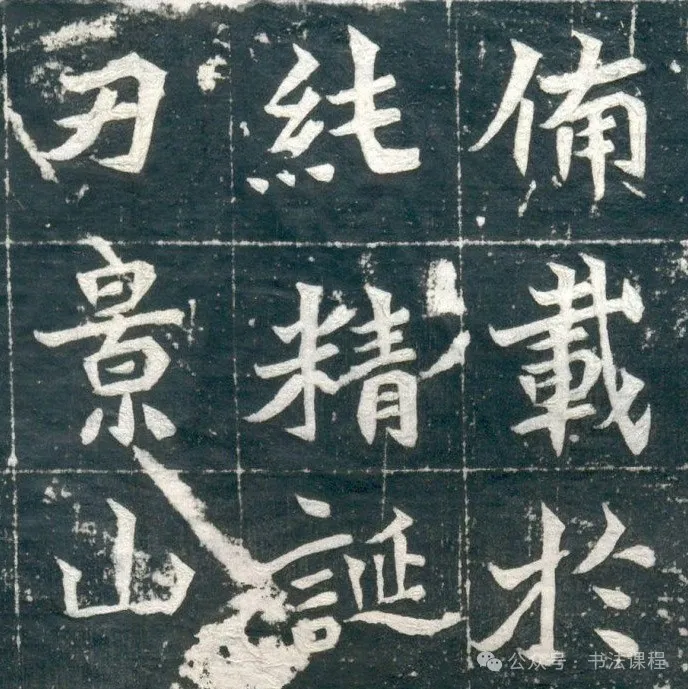 備載於
純精誕
景山
公众号：书法课程